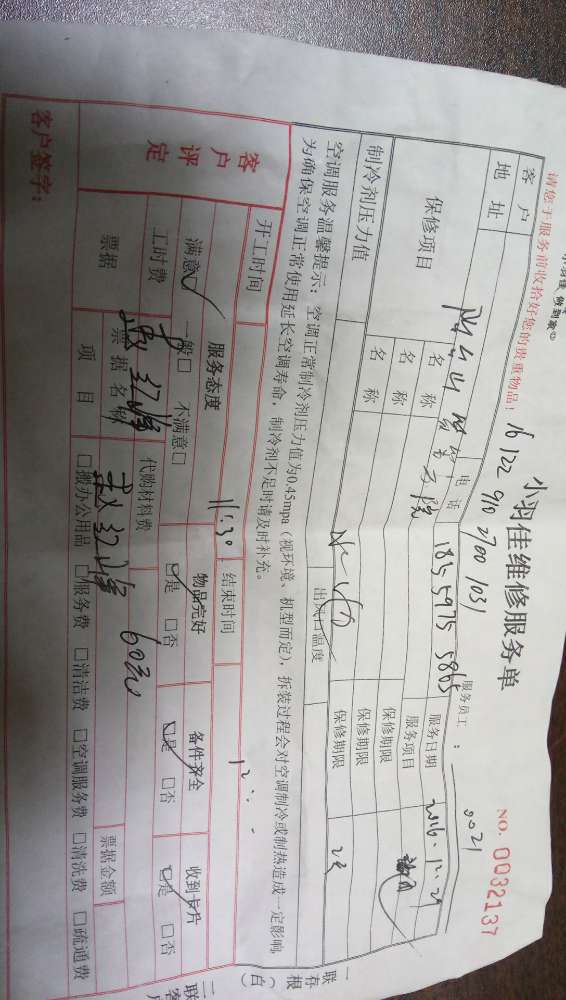 请您于服务前收拾好您的贵重物品！
小羽佳维修服务单
NO. 0032137
16122 910 2700 1031
服务员工： 0021
客户地址
电话 185 5975 5865
服务日期 2016.12.29
保修项目
名称
服务项目
名称
保修期限
名称
保修期限
制冷剂压力值
出风口温度
保修期限
空调服务温馨提示：空调正常制冷剂压力值为0.45mpa（视环境、机型而定），拆装过程会对空调制冷或制热造成一定影响，
为确保空调正常使用延长空调寿命，制冷剂不足时请及时补充。
开工时间 11:30 结束时间 12:
客户评定
服务态度 物品完好 备件齐全 收到卡片
满意□ 一般□ 不满意□ □是 □否 □是 □否 □是 □否
工时费 代购材料费 60元
票据 票据名称 票据金额
项目 □搬办公用品 □服务费 □清洁费 □空调服务费 □清洗费 □疏通费
客户签字：
一联存根（白）
二联客户